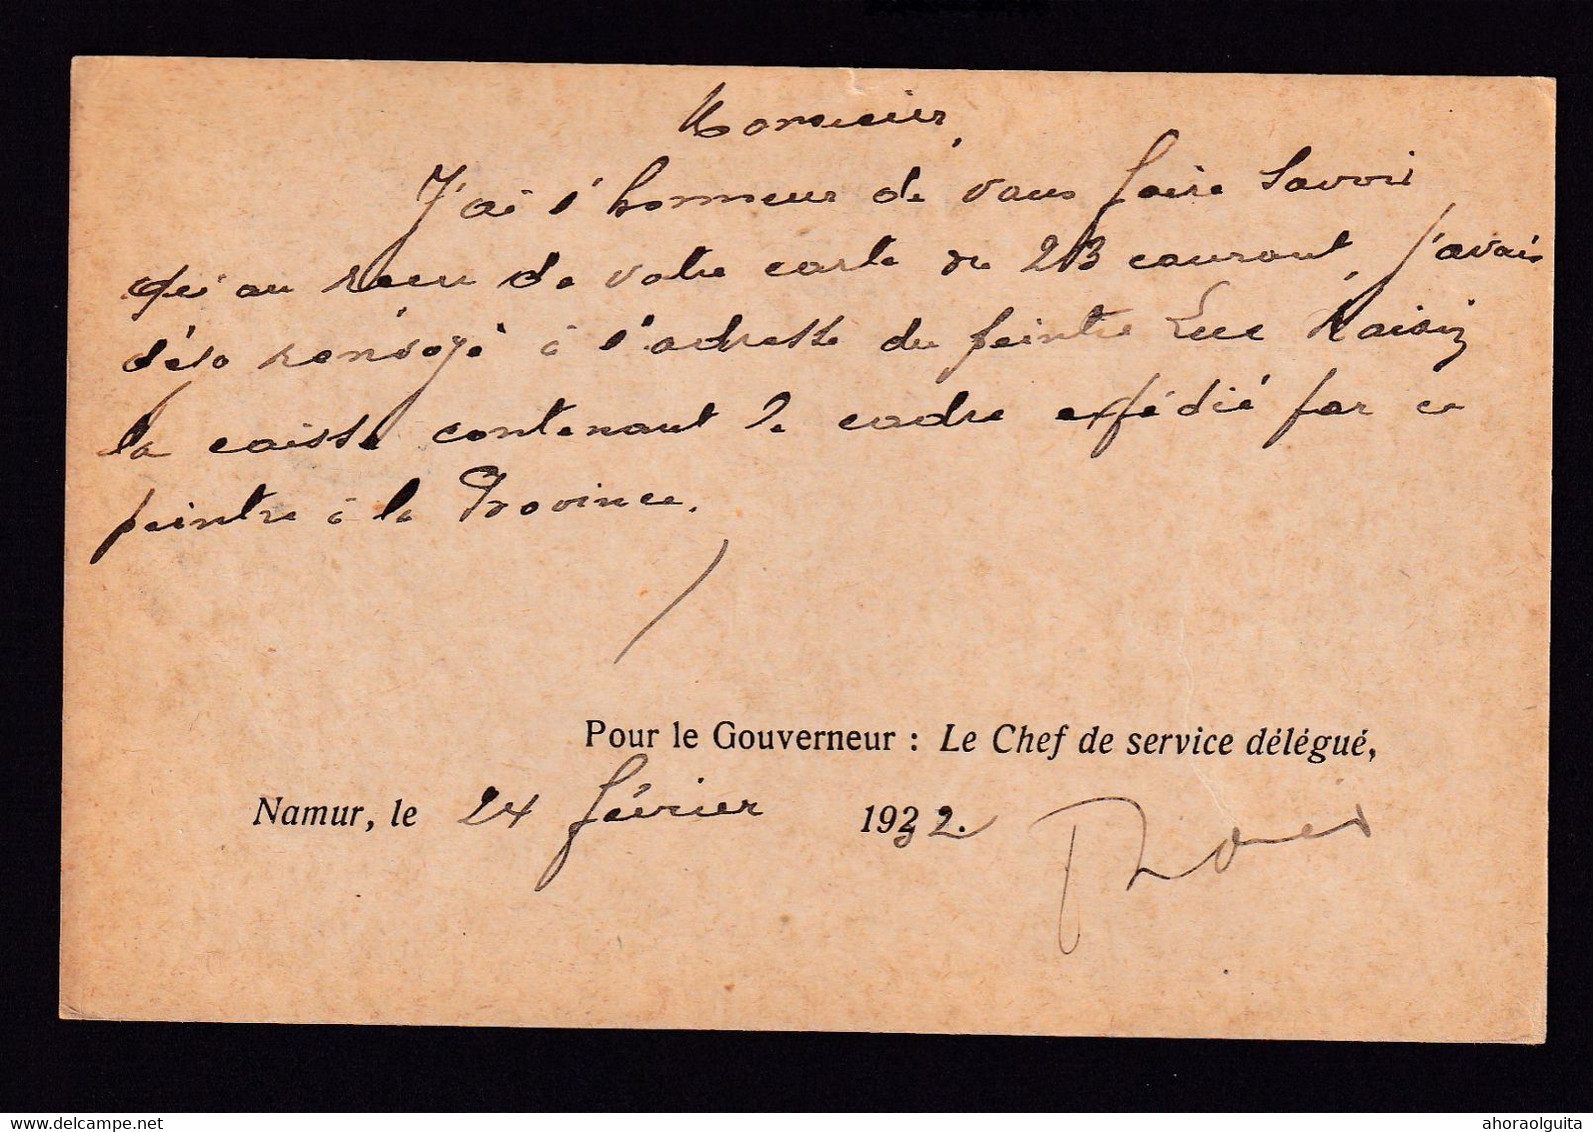 Monsieur,
J'ai l'honneur de vous faire savoir
qu'au reçu de votre carte du 23 courant, j'avais
déjà renvoyé à l'adresse du peintre Luc Kaisin
la caisse contenant le cadre expédié par ce
peintre à la Province.
Pour le Gouverneur : Le Chef de service délégué,
Namur, le 24 février 1932.
delcampe.net
ahoraolguita